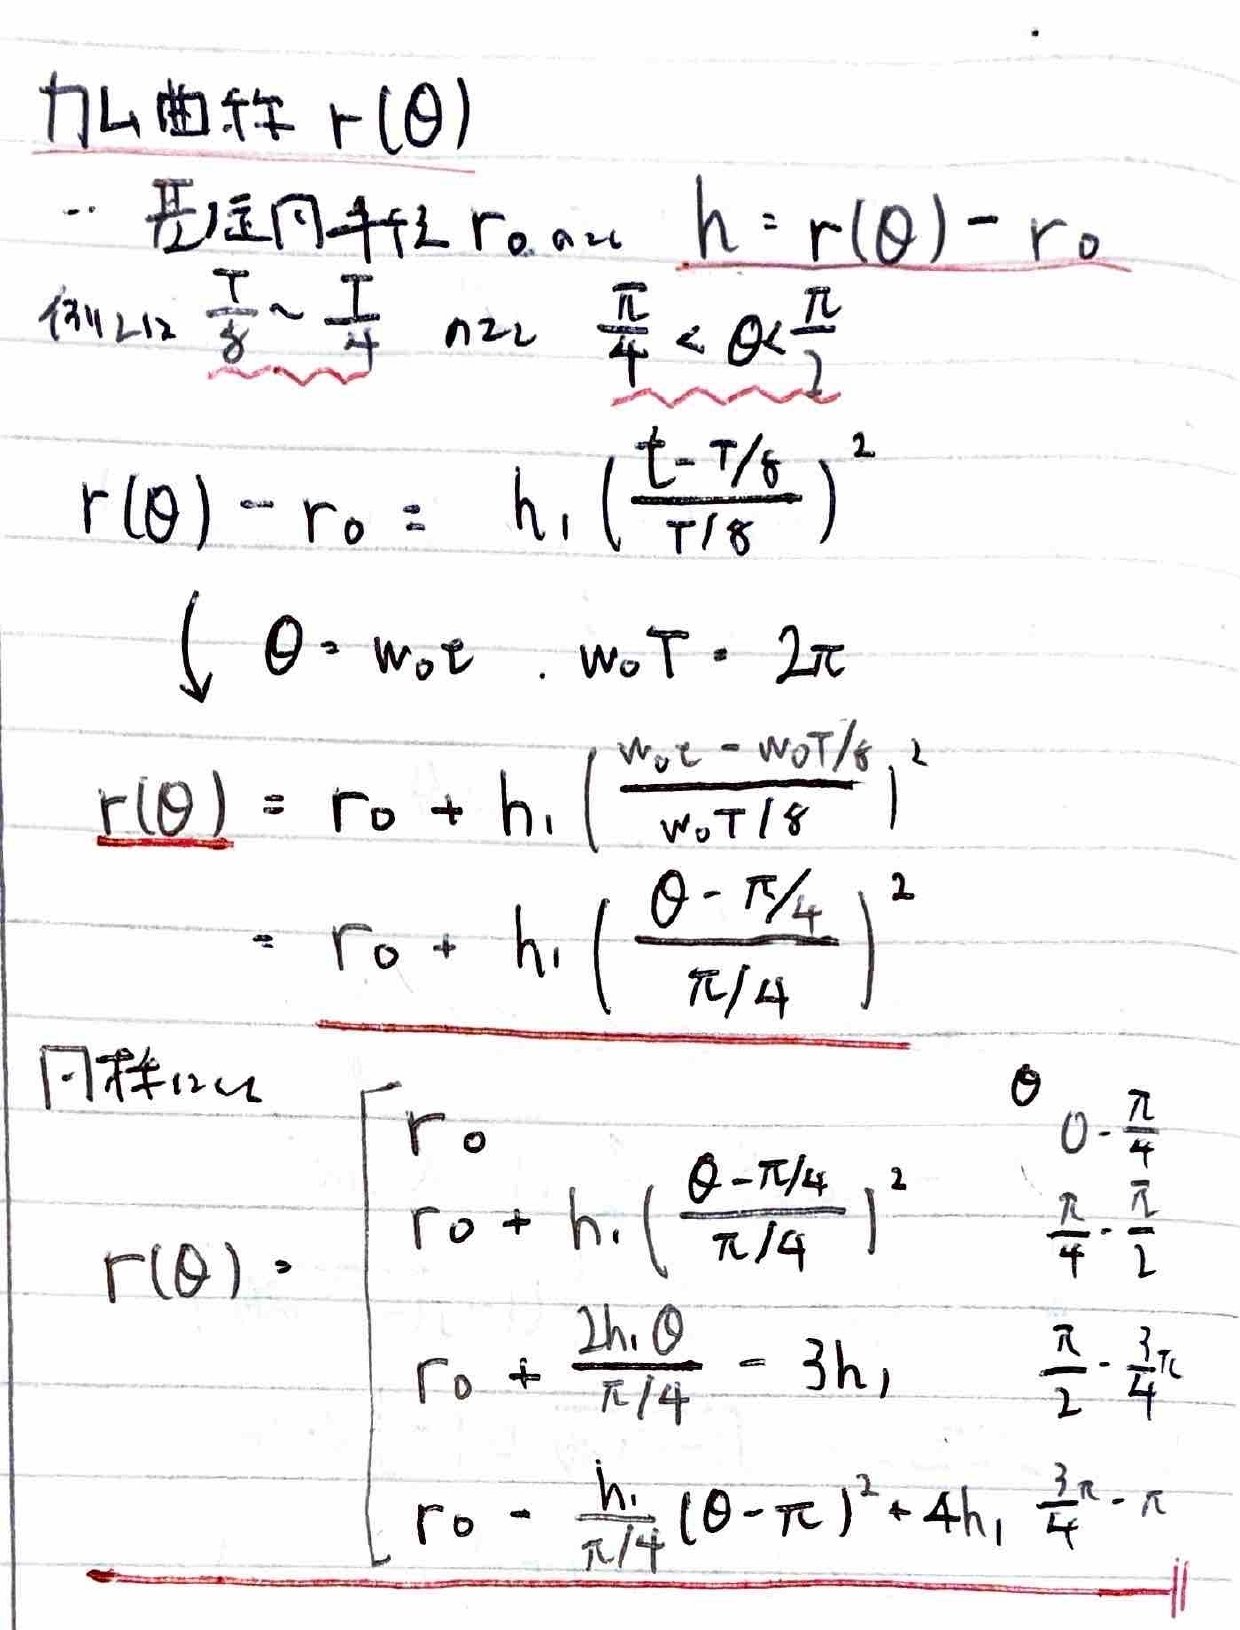 カム曲線 r(θ)
… 基礎円半径 r₀ のとき h = r(θ) - r₀
例えば T/8 ~ T/4 のとき π/4 < θ < π/2
r(θ) - r₀ = h₁ ( (t - T/8) / (T/8) )²
↓ θ = w₀t . w₀T = 2π
r(θ) = r₀ + h₁ ( (w₀t - w₀T/8) / (w₀T/8) )²
= r₀ + h₁ ( (θ - π/4) / (π/4) )²
同様にして θ
r₀ 0 - π/4
r₀ + h₁ ( (θ - π/4) / (π/4) )² π/4 - π/2
r(θ) =
r₀ + 2h₁θ / (π/4) - 3h₁ π/2 - 3/4 π
r₀ - h₁ / (π/4) (θ - π)² + 4h₁ 3/4 π - π